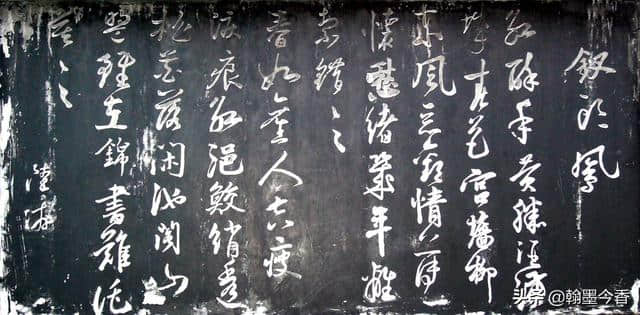 釵頭鳳
紅酥手黃縢酒滿
城春色宮牆柳
東風惡歡情薄一
懷愁緒幾年離
索錯々々
春如舊人空瘦
淚痕紅浥鮫綃透
桃花落閑池閣山
盟雖在錦書難托
莫々々
陸游
头条 @翰墨今香